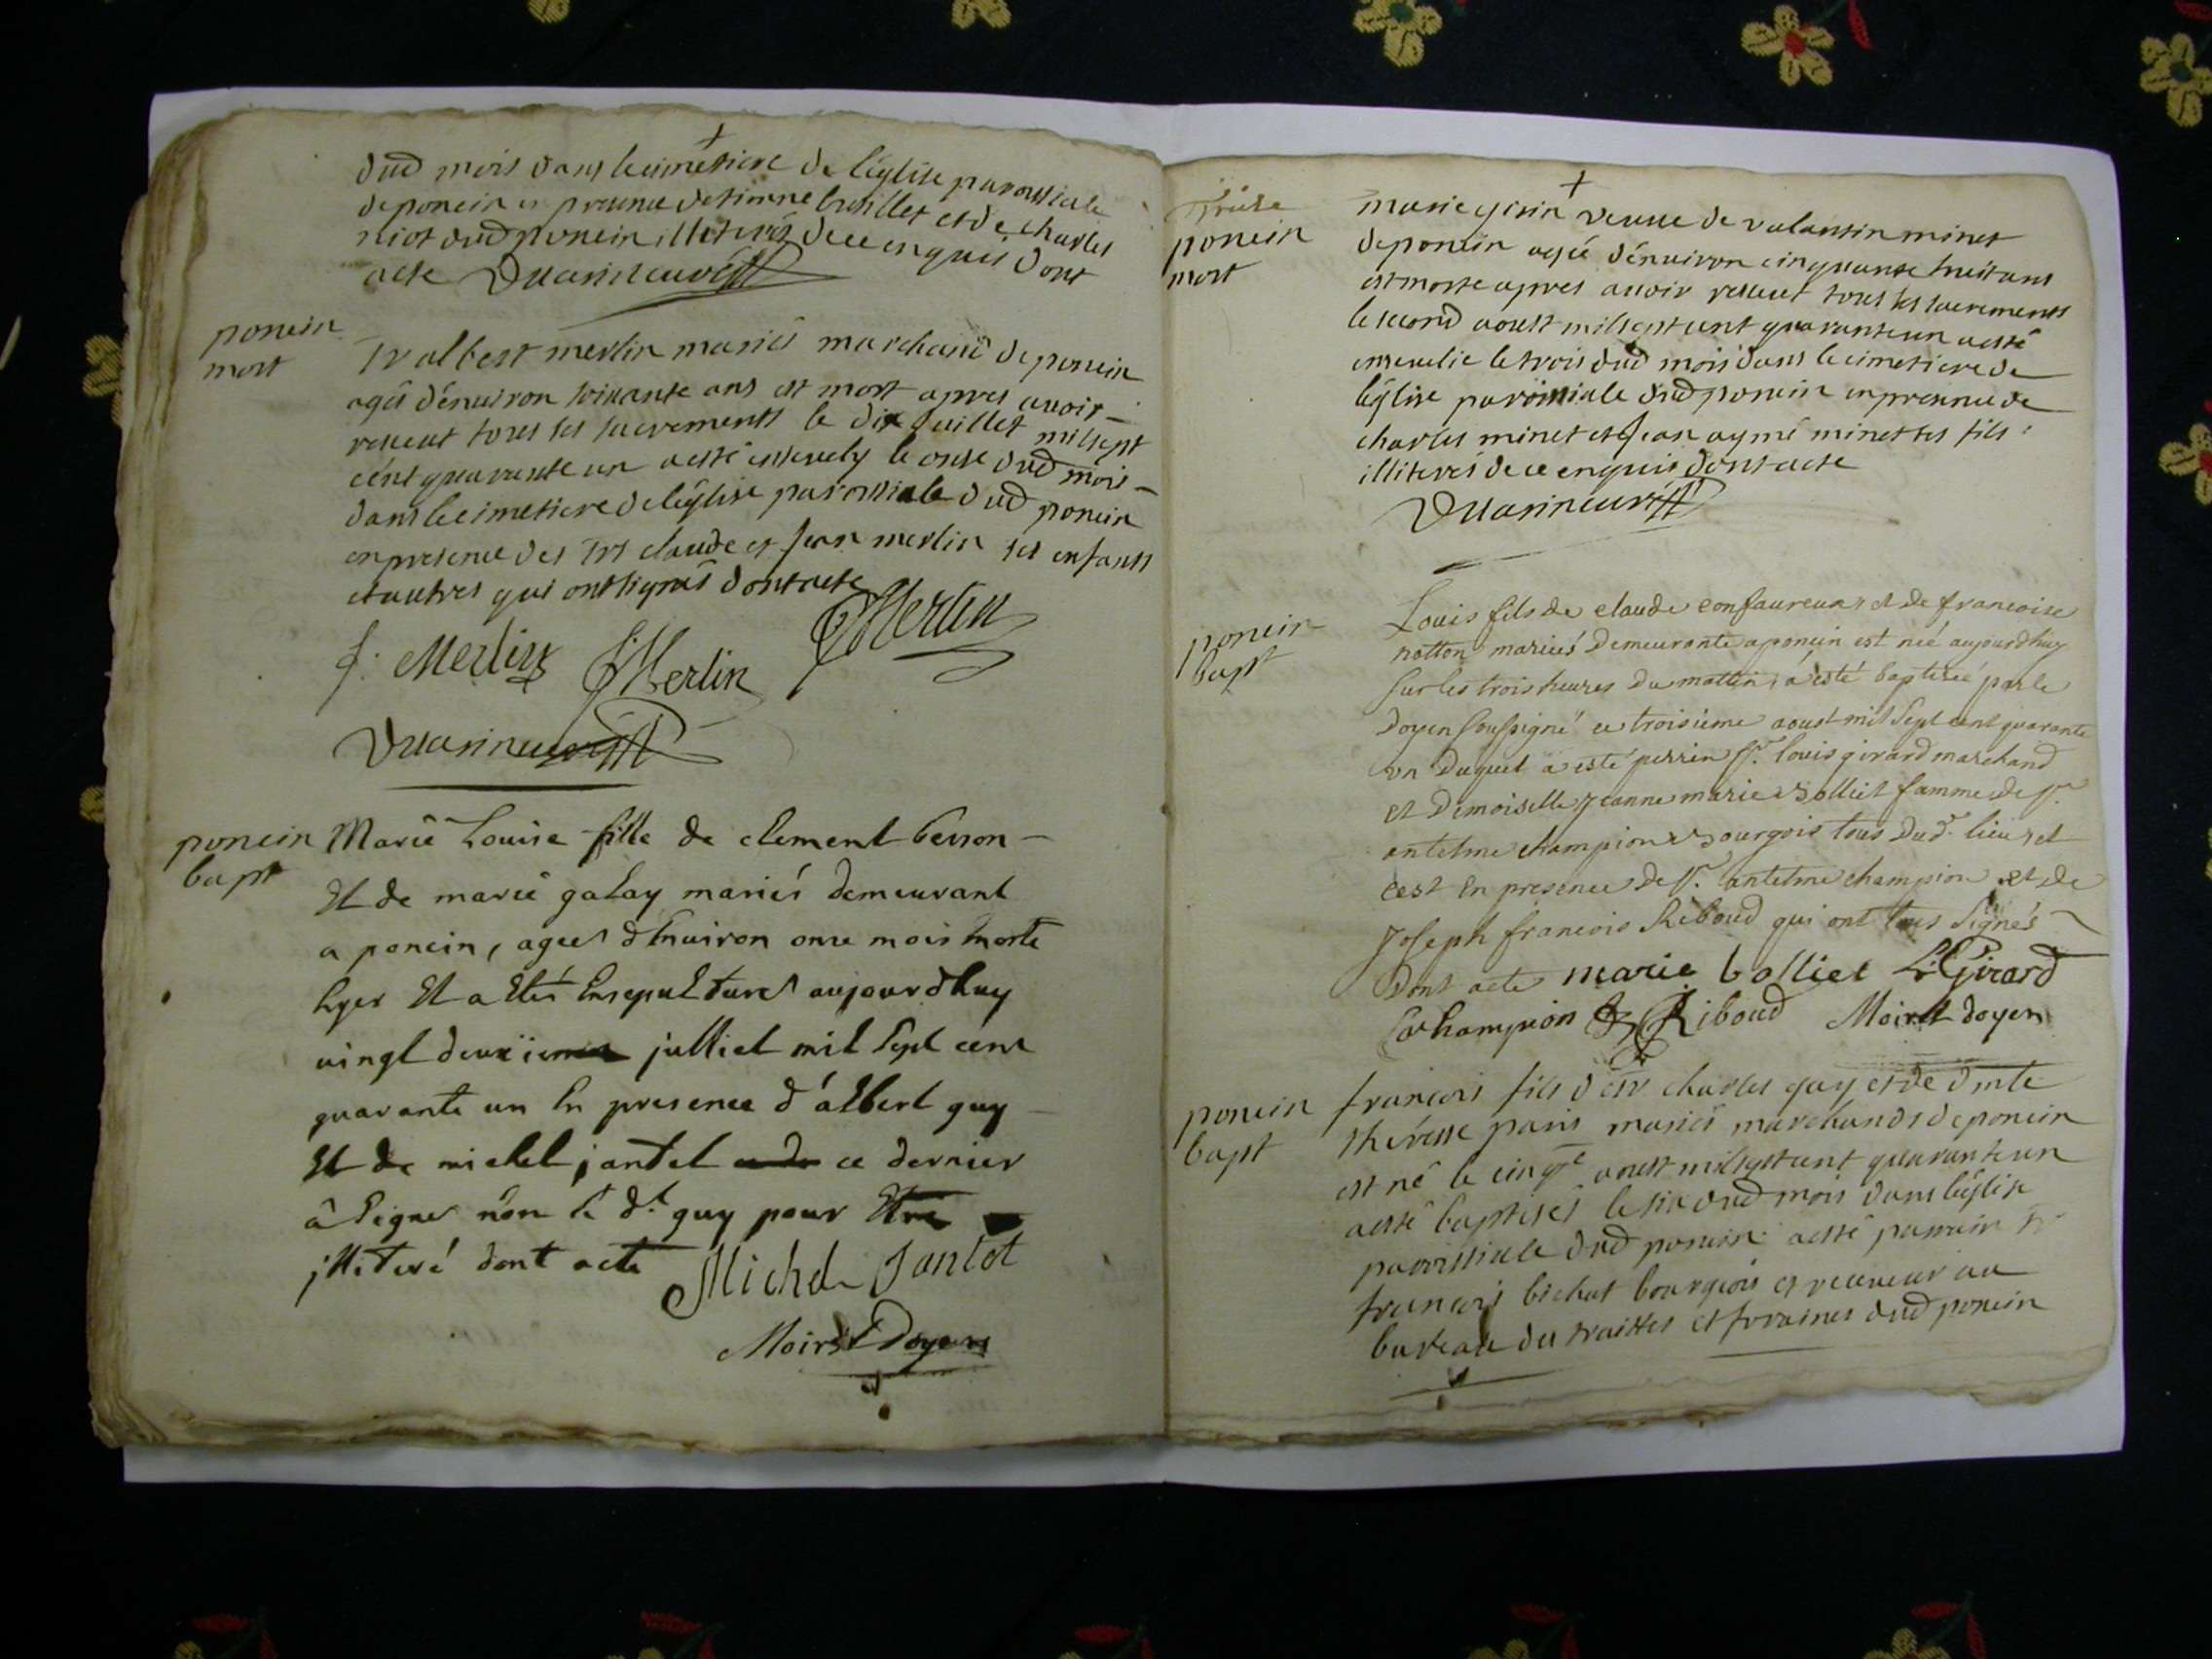 dud mois dans le cimetiere de léglise paroissiale
de poncin en presence detienne brillet et de charles
niot dud poncin illiterés de ce enquis dont
acte
poncin
mort
Sr albert merlin mariés marchand de poncin
agé dénuiron soixante ans est mort apres auoir
receut tous ses sacrements le dix Juillet milsept
cént quarante un a esté enseuely le onse dud mois
dans le cimetiere de léglise paroissiale dud poncin
en presence des srs claude et Jean merlin ses enfants
et autres qui ont signés dont acte
J. Merlin Merlin Merlin
poncin
bapt
Marie Louise fille de clement
Et de marie galay mariés demeurant
a poncin, agée dEnuiron onze mois morte
hyer Et a Etés Ensepulturer aujourdhuy
uingt deuxieme julliet mil Sept cent
quarante un En presence d'albert guy
Et de michel jantet ce dernier
à Signer nôn le dt guy pour Etre
jlliteré dont acte
Michel Jantet
Moiret Doyen
poncin
mort
marie gisin veuue de valantin minet
de poncin agée dénuiron cinquante huit ans
est morte apres auoir receut tous ses sacrements
le second aoust milsept cent quarante un a esté
enseuelie le trois dud mois dans le cimetiere de
léglise paroissiale dud poncin en presence de
charles minet et Jean aymé minet ses fils
illiterés de ce enquis dont acte
poncin
bapt
Louis fils de claude confaureux et de francoise
notton mariés Demeurante a poncin est neé aujourdhuy
sur les trois heures du mattin, a esté baptiseé par le
Doyen soussigné ce troisieme aoust mil Sept cent quarante
un Duquel a esté perrin Sr. louis girard marchand
et Demoiselle jeanne marie bolliet famme de Sr.
antelme champion bourgois tous Dud. lieu et
cest En presence de Sr. antelme champion et de
Joseph francois Riboud qui ont tous Signés
Dont acte marie bolliet L. Girard
Champion Riboud Moiret doyen
poncin
bapt
francois fils de sr charles guy et de dmlle
théresse paris mariés marchands de poncin
est né le cinqe aoust milsept cent quarante un
a esté baptisés le six dud mois dans léglise
paroissiale dud poncin a esté parrain sr
francois bichat bourgeois et receueur au
bureau des traittes et foraines dud poncin